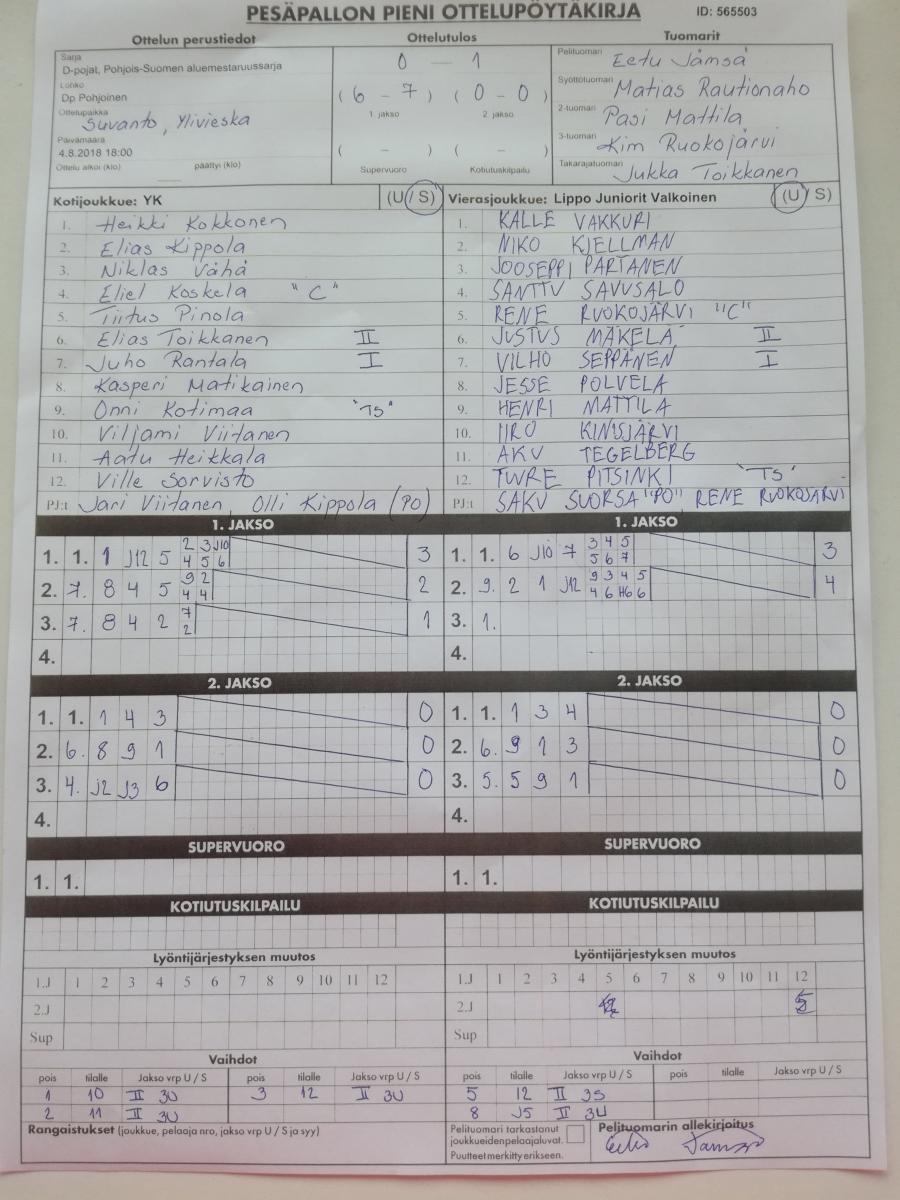 PESÄPALLON PIENI OTTELUPÖYTÄKIRJA ID: 565503
Ottelun perustiedot Ottelutulos Tuomarit
Sarja
D-pojat, Pohjois-Suomen aluemestaruussarja
Lohko
Dp Pohjoinen
Ottelupaikka
Suvanto, Ylivieska
Päivämäärä
4.8.2018 18:00
Ottelu alkoi (klo) päättyi (klo)
0 — 1
(6 - 7) (0 - 0)
1. jakso 2. jakso
( - ) ( - )
Supervuoro Kotiutuskilpailu
Pelituomari Eetu Jämsä
Syöttötuomari Matias Rautionaho
2-tuomari Pasi Mattila
3-tuomari Kim Ruokojärvi
Takarajatuomari Jukka Toikkanen
Kotijoukkue: YK (U / S)
1. Heikki Kokkonen
2. Elias Kippola
3. Niklas Vähä
4. Eliel Koskela "C"
5. Tiitus Pinola
6. Elias Toikkanen II
7. Juho Rantala I
8. Kasperi Matikainen
9. Onni Kotimaa "TS"
10. Viljami Viitanen
11. Aatu Heikkala
12. Ville Sorvisto
PJ:t Jari Viitanen, Olli Kippola (PO)
Vierasjoukkue: Lippo Juniorit Valkoinen (U / S)
1. KALLE VAKKURI
2. NIKO KJELLMAN
3. JOOSEPPI PARTANEN
4. SANTTU SAVUSALO
5. RENE RUOKOJÄRVI "C"
6. JUSTUS MÄKELÄ II
7. VILHO SEPPÄNEN I
8. JESSE POLVELA
9. HENRI MATTILA
10. IIRO
11. AKU TEGELBERG
12. TUURE PITSINKI "TS"
PJ:t SAKU SUORSA "PO" RENE RUOKOJÄRVI
1. JAKSO 1. JAKSO
1. 1. 1 J12 5 2 3 J10 4 5 6 3
2. 7. 8 4 5 9 2 4 4 2
3. 7. 8 4 2 7 2 1
4.
1. 1. 6 J10 7 3 4 5 5 6 7 3
2. 9. 2 1 J12 9 3 4 5 4 6 H6 6 4
3. 1.
4.
2. JAKSO 2. JAKSO
1. 1. 1 4 3 0
2. 6. 8 9 1 0
3. 4. J2 J3 6 0
4.
1. 1. 1 3 4 0
2. 6. 9 1 3 0
3. 5. 5 9 1 0
4.
SUPERVUORO SUPERVUORO
1. 1. 1. 1.
KOTIUTUSKILPAILU KOTIUTUSKILPAILU
Lyöntijärjestyksen muutos Lyöntijärjestyksen muutos
1.J 1 2 3 4 5 6 7 8 9 10 11 12 1.J 1 2 3 4 5 6 7 8 9 10 11 12
2.J 2.J
Sup Sup
Vaihdot Vaihdot
pois tilalle Jakso vrp U / S pois tilalle Jakso vrp U / S
1 10 II 3U 3 12 II 3U
2 11 II 3U
pois tilalle Jakso vrp U / S pois tilalle Jakso vrp U / S
5 12 II 3S
8 J5 II 3U
Rangaistukset (joukkue, pelaaja nro, jakso vrp U / S ja syy)
Pelituomari tarkastanut
joukkueidenpelaajaluvat.
Puutteet merkitty erikseen.
Pelituomarin allekirjoitus